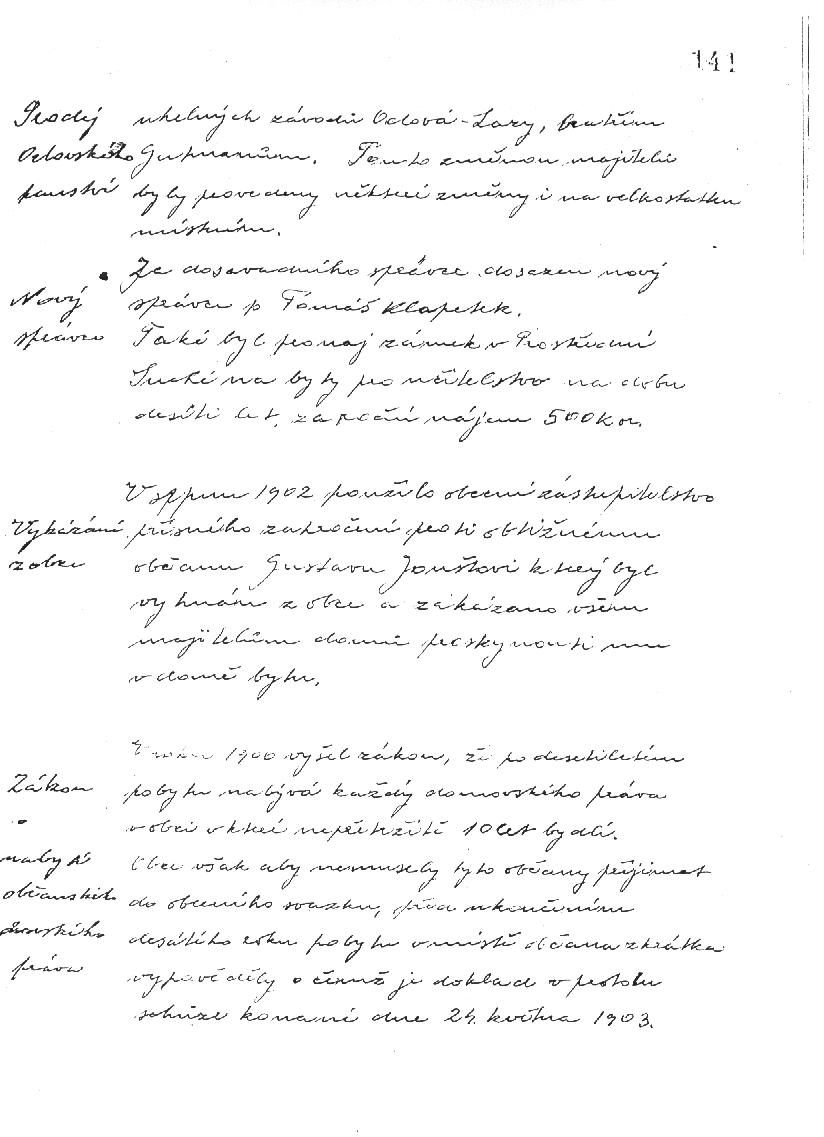 141
Prodej uhelných závodů Orlová-Lazy, bratřím
Orlovského Gutmanům. Touto změnou majitelů
panství byly provedeny některé změny i na velkostatku
místním.
Je dosavadního správce dosazen nový
Nový správce p Tomáš Klapetek.
správce Také byl pronaj zámek v Prostřední
Suché na byty pro učitelstvo na dobu
desíti let, za roční nájem 500 Kor.
V srpnu 1902 použilo obecní zastupitelstvo
Vykázání přísného zakročení proti obtížnému
z obce občanu Gustavu který byl
vyhnán z obce a zakázano všem
majitelům domů poskynouti mu
v domě bytu.
V roku 1900 vyšel zákon, že po desetiletém
Zákon pobytu nabývá každý domovského práva
v obci v které nepřetržitě 10 let bydlí.
nabytí Obce však aby nemusely tyto občany přijimat
občanského do obecního svazku, před ukončením
domovského desátého roku pobytu v místě občana zkrátka
práva vypověděly o čemž je doklad v protolu
schůze konané dne 24. května 1903.